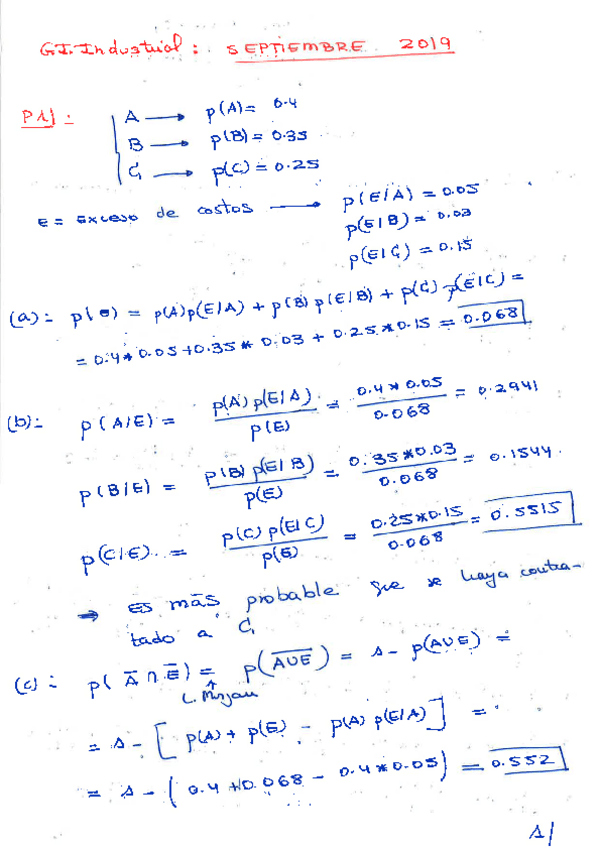 G.I. Industrial: SEPTIEMBRE 2019
P1]:
A → p(A) = 0.4
B → p(B) = 0.35
C → p(C) = 0.25
E = Exceso de costos → p(E/A) = 0.05
p(E|B) = 0.03
p(E|C) = 0.15
(a): p(e) = p(A)p(E/A) + p(B) p(E/B) + p(C) p(E|C) =
= 0.4*0.05+0.35*0.03+0.25*0.15 = 0.068
(b): p(A/E) = p(A) p(E/A) / p(E) = 0.4*0.05 / 0.068 = 0.2941
p(B/E) = p(B) p(E/B) / p(E) = 0.35*0.03 / 0.068 = 0.1544.
p(C/E). = p(C) p(E|C) / p(E) = 0.25*0.15 / 0.068 = 0.5515
→ es más probable que se haya contra-
tado a C
(c): p(A̅ ∩ E̅) = p(A̅U̅E̅) = 1 - p(AUE) =
L. Morgan
= 1 - [p(A) + p(E) - p(A) p(E/A)] =
= 1 - (0.4+0.068 - 0.4*0.05) = 0.552
1/